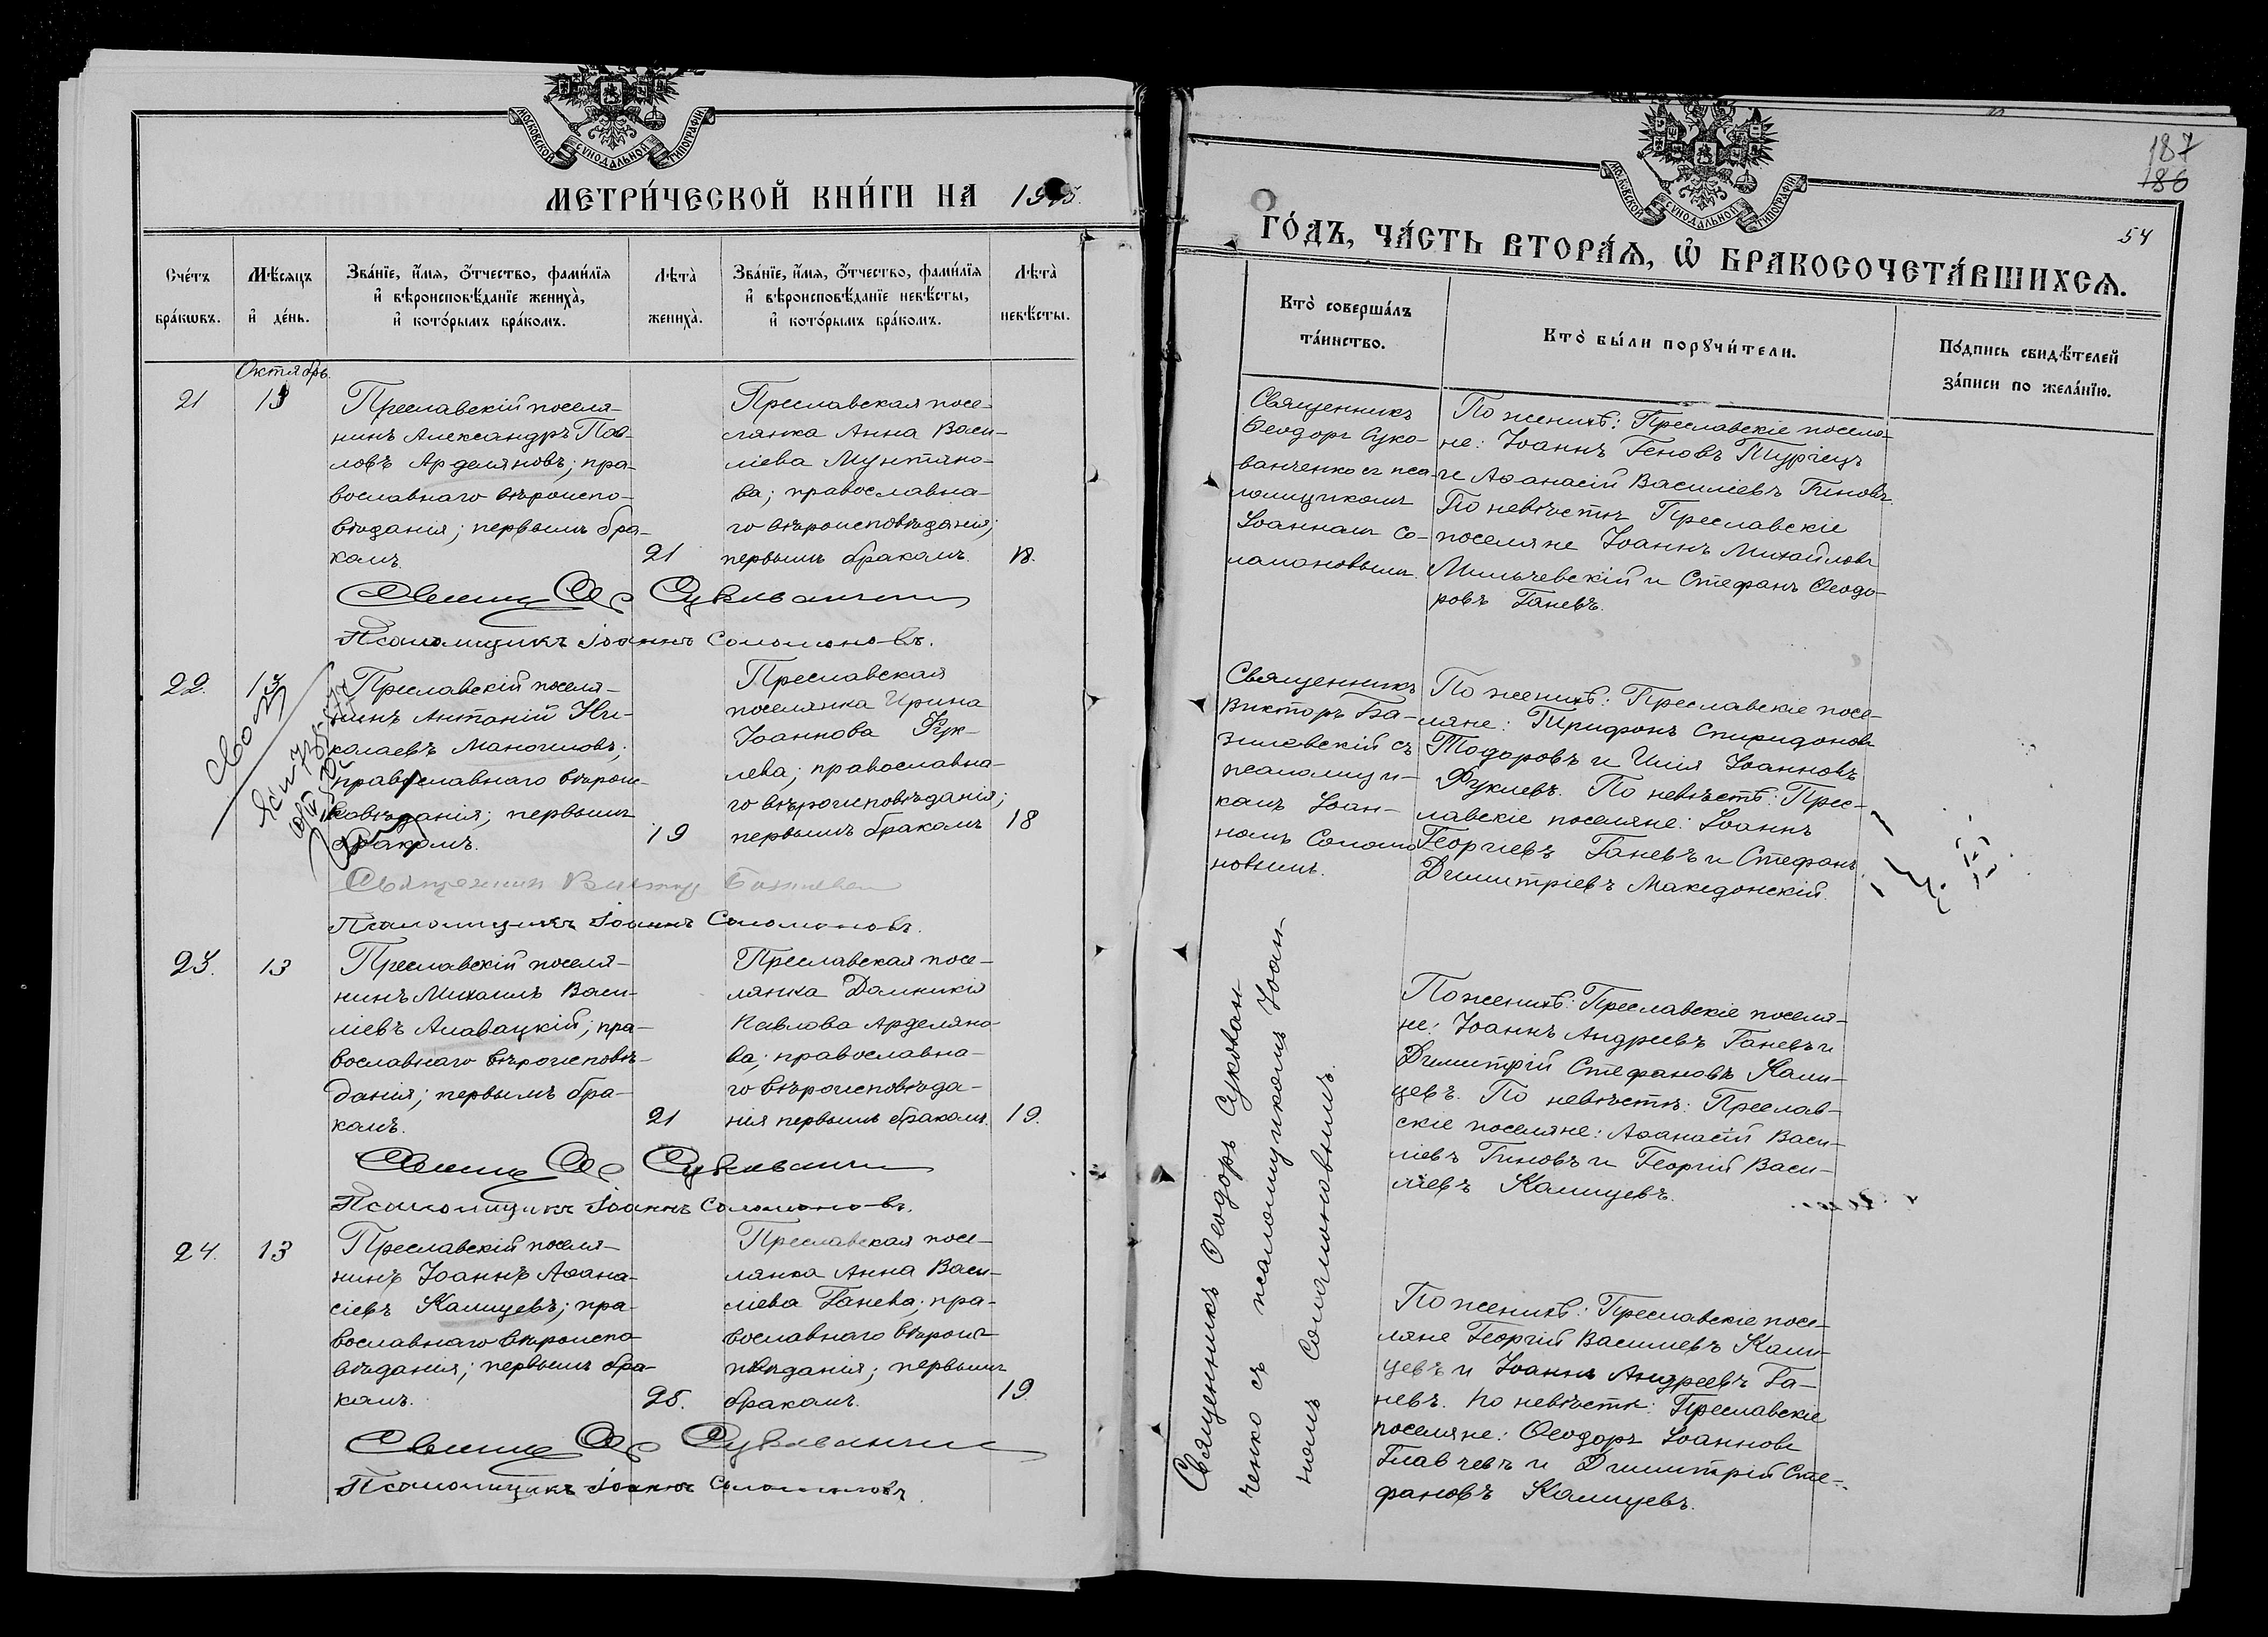 МОСКОВСКОЙ СѴНОДАЛЬНОЙ ТИПОГРАФІИ.
МЕТРИ́ЧЕСКОЙ КНИ́ГИ НА
Сче́тъ бра́кѡвъ.
Мѣ́сяцъ и҆ де́нь.
Зва́нїе, и҆́мя, ѻ҆́тчество, фами́лїя
и҆ вѣроисповѣ́данїе жениха̀,
и҆ кото́рымъ бра́комъ.
Лѣта̀ жениха̀.
Зва́нїе, и҆́мя, ѻ҆́тчество, фами́лїя
и҆ вѣроисповѣ́данїе невѣ́сты,
и҆ кото́рымъ бра́комъ.
Лѣта̀ невѣ́сты.
Октябрь.
21
13
Преславскій поселя-
нинъ Александръ Пав-
ловъ Арделяновъ; пра-
вославнаго вѣроиспо-
вѣданія; первымъ бра-
комъ.
21
Преславская посе-
лянка Анна Васи-
ліева Мунтяно-
ва; православна-
го вѣроисповѣданія;
первымъ бракомъ.
18.
Псаломщикъ Іоаннъ Соломоновъ.
22.
13
Преславскій поселя-
нинъ Антоній Ни-
колаевъ Маногиловъ;
православнаго вѣроис-
повѣданія; первымъ
бракомъ.
19
Преславская
поселянка Ирина
Іоаннова Фук-
лева; православна-
го вѣроисповѣданія;
первымъ бракомъ
18
Священникъ Викторъ
Псаломщикъ Іоаннъ Соломоновъ.
23.
13
Преславскій поселя-
нинъ Михаилъ Васи-
ліевъ Алавацкій; пра-
вославнаго вѣроисповѣ-
данія; первымъ бра-
комъ.
21
Преславская посе-
лянка Домникія
Павлова Арделяно-
ва; православна-
го вѣроисповѣда-
нія первымъ бракомъ.
19.
Псаломщикъ Іоаннъ Соломоновъ.
24.
13
Преславскій поселя-
нинъ Іоаннъ Аѳана-
сіевъ Калицевъ; пра-
вославнаго вѣроиспо-
вѣданія; первымъ бра-
комъ.
25.
Преславская посе-
лянка Анна Васи-
ліева Ганева; пра-
вославнаго вѣроис-
повѣданія; первымъ
бракомъ.
19
Псаломщикъ Іоаннъ Соломоновъ
МОСКОВСКОЙ СѴНОДАЛЬНОЙ ТИПОГРАФІИ.
187
186
54
ГО́ДЪ, ЧА́СТЬ ВТОРА́Ѧ, Ѡ҆ БРАКОСОЧЕТА́ВШИХСѦ.
Кто̀ соверша́лъ
та́инство.
Кто̀ бы́ли порꙋчи́тели.
По́дпись свидѣ́телей
за́писи по жела́нїю.
Священникъ
Ѳеодоръ Суко-
ванченко съ пса-
ломщикомъ
Іоанномъ Со-
ломоновымъ.
По женихѣ: Преславскіе поселя-
не: Іоаннъ Геновъ Пургецъ
и Аѳанасій Василіевъ Гиновъ.
По невѣстѣ Преславскіе
поселяне Іоаннъ Михайловъ
Мильчевскій и Стефанъ Ѳеодо-
ровъ Ганевъ.
Священникъ
Викторъ Ба-
зилевскій съ
псаломщи-
комъ Іоан-
номъ Соломо
новымъ.
По женихѣ: Преславскіе посе-
ляне: Трифонъ Спиридоновъ
Тодоровъ и Илія Іоанновъ
Фуклевъ. По невѣстѣ: Прес-
лавскіе поселяне: Іоаннъ
Георгіевъ Ганевъ и Стефанъ
Димитріевъ Македонскій.
Священникъ Ѳеодоръ Сукован-
ченко съ псаломщикомъ Іоан-
номъ Соломоновымъ.
По женихѣ: Преславскіе поселя-
не: Іоаннъ Андреевъ Ганевъ и
Димитрій Стефановъ Кали-
цевъ. По невѣстѣ: Преслав-
скіе поселяне: Аѳанасій Васи-
ліевъ Гиновъ и Георгій Васи-
ліевъ Калицевъ.
По женихѣ: Преславскіе посе-
ляне Георгій Василіевъ Кали-
цевъ и Іоаннъ Андреевъ Га-
невъ. По невѣстѣ: Преславскіе
поселяне: Ѳеодоръ Іоанновъ
Главчевъ и Димитрій Сте-
фановъ Калицевъ.